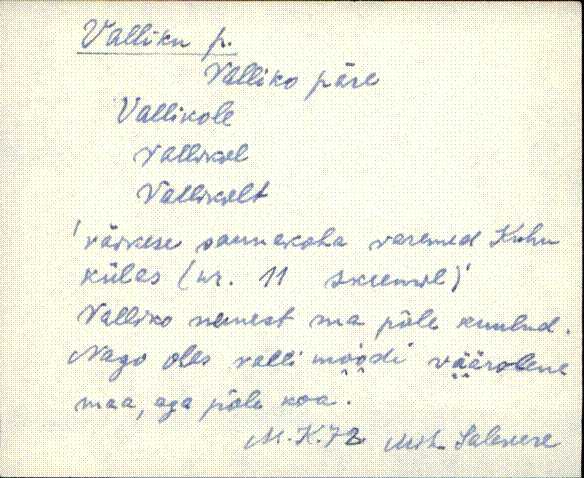 Valliku p.
Valliko päre
Vallikole
Vallikol
Vallikolt
'väikese saunakoha varemed Kuhu
külas (nr. 11 skeemil)'
Valliko nemest ma põle kuulud.
Nago oles valli möödi väärolene
maa, aga põle koa.
M.K. 72 Mih. Salavere